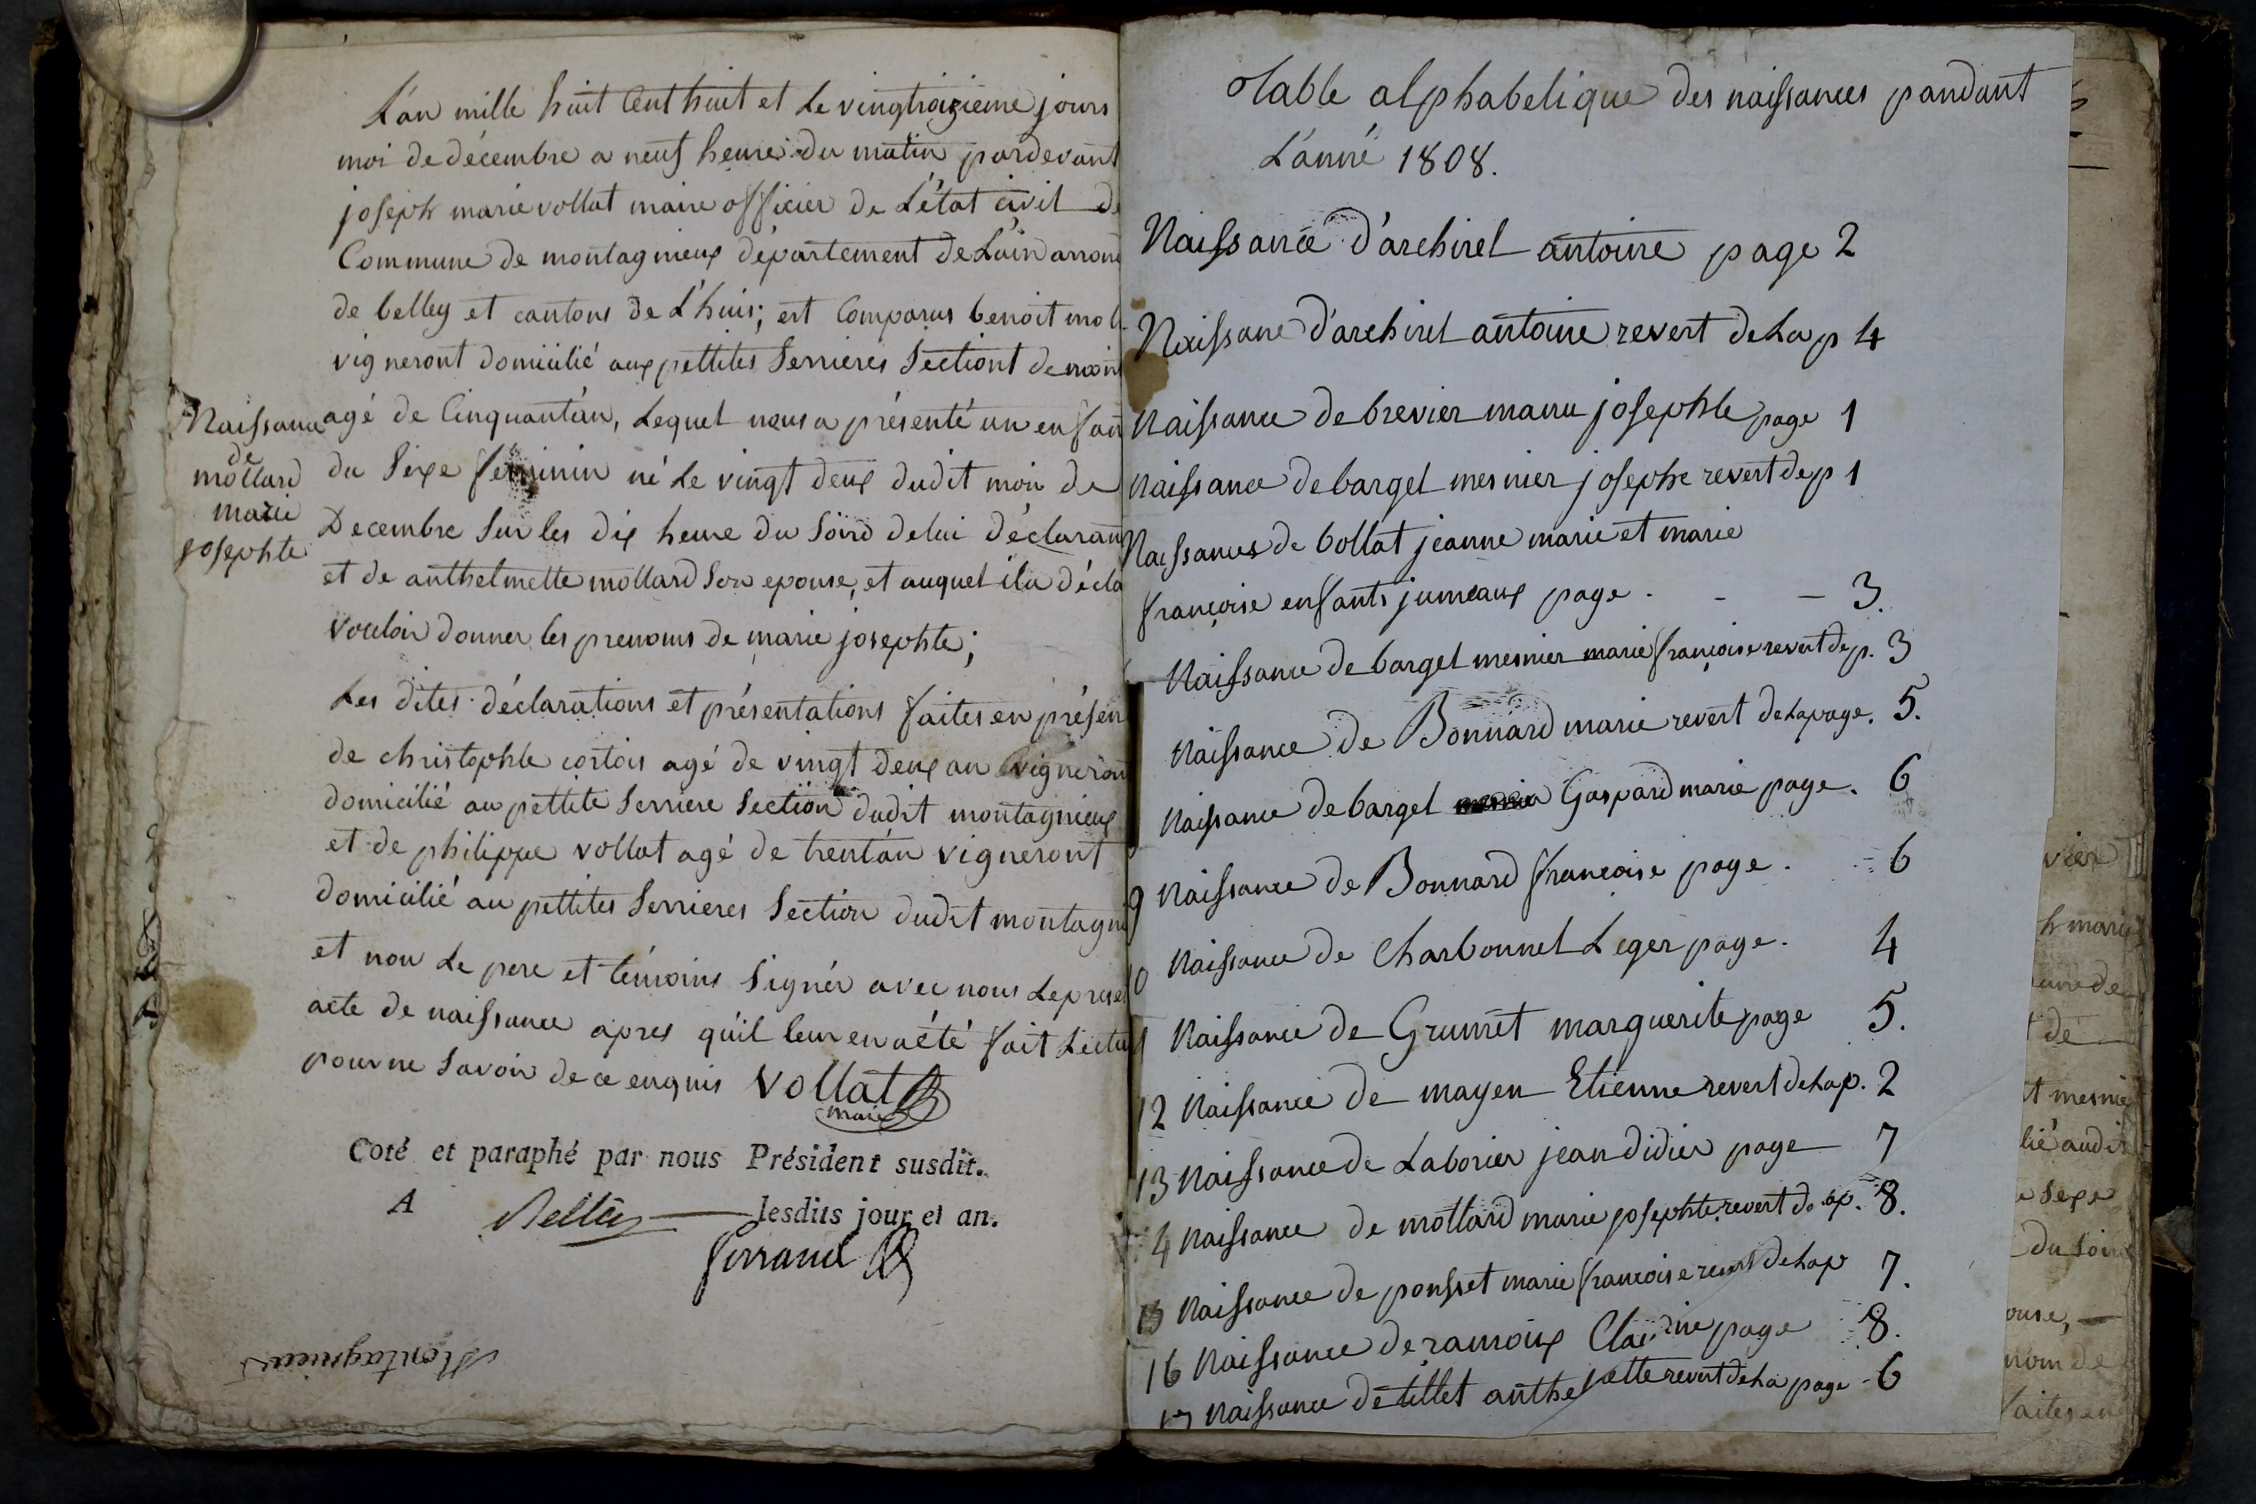 L'an mille huit Cent huit et Le vingtroizieme jours
moi de décembre a neuf heure du matin pardevant
joseph marie vollat maire officier de L'état civil de
Commune de montagnieux département de L'ain arron
de belley et cantons de L'huis; est Comparus benoit moll
vigneront domicilié aux pettites Serrieres Sectiont de mon
Naissance
de
mollard
marie
josephte
agé de Cinquantán, Lequel nous a présenté un enfan
du Sexe feminin né Le vingt deux dudit moi de
Decembre Sur les dix heure du Soird de lui déclaran
et de anthelmette mollard Son epouse, et auquel il a décla
vouloir donner les prenoms de marie josephte;
Les dites déclarations et présentations faites en présen
de christophle cortois agé de vingt deux an vigneron
domicilié au pettite Serriere Section dudit montagnieux
et de philippe vollat agé de trentán vigneront
domicilié au pettites Serrieres Section dudit montagni
et non Le pere et témoins Signér avec nous Le prese
acte de naissance apres qu'il leur en a été fait Lectu
pour ne Savoir de ce enquis Vollat
maire
Coté et paraphé par nous Président susdit.
A Belley lesdits jour et an.
ferrand
Montagnieux
Table alphabetique des naissances pandant
L'anné 1808.
Naissance d'archirel antoine page 2
Naissane d'archirel antoine revert de La p 4
Naissance de brevier marie josephte page 1
Naissance de barget mesnier josephe revert de p 1
Naissances de bollat jeanne marie et marie
françoise enfants jumeaux page . - - 3.
Naissance de barget mesnier marie françoise revert de p. 3
Naissance de Bonnard marie revert de La page. 5.
Naissance de barget Gaspard marie page. 6
9 Naissance de Bonnard françoise page. 6
10 Naissance de Charbonnet Leger page. 4
Naissance de Grumet marguerite page 5.
12 Naissance de mayen Etienne revert de La p. 2
13 Naissance de Laborier jean didier page 7
4 Naissance de mollard marie josephte revert de ap. 8.
15 Naissance de ponsset marie françoise revert de La p 7.
16 Naissance de ramoux Claudine page 8.
17 Naissance de tillet anthe revert de La page - 6
vier
h marie
de
t mesnie
lié audit
Sexe
du Soir
ouse,
nom de
faites en